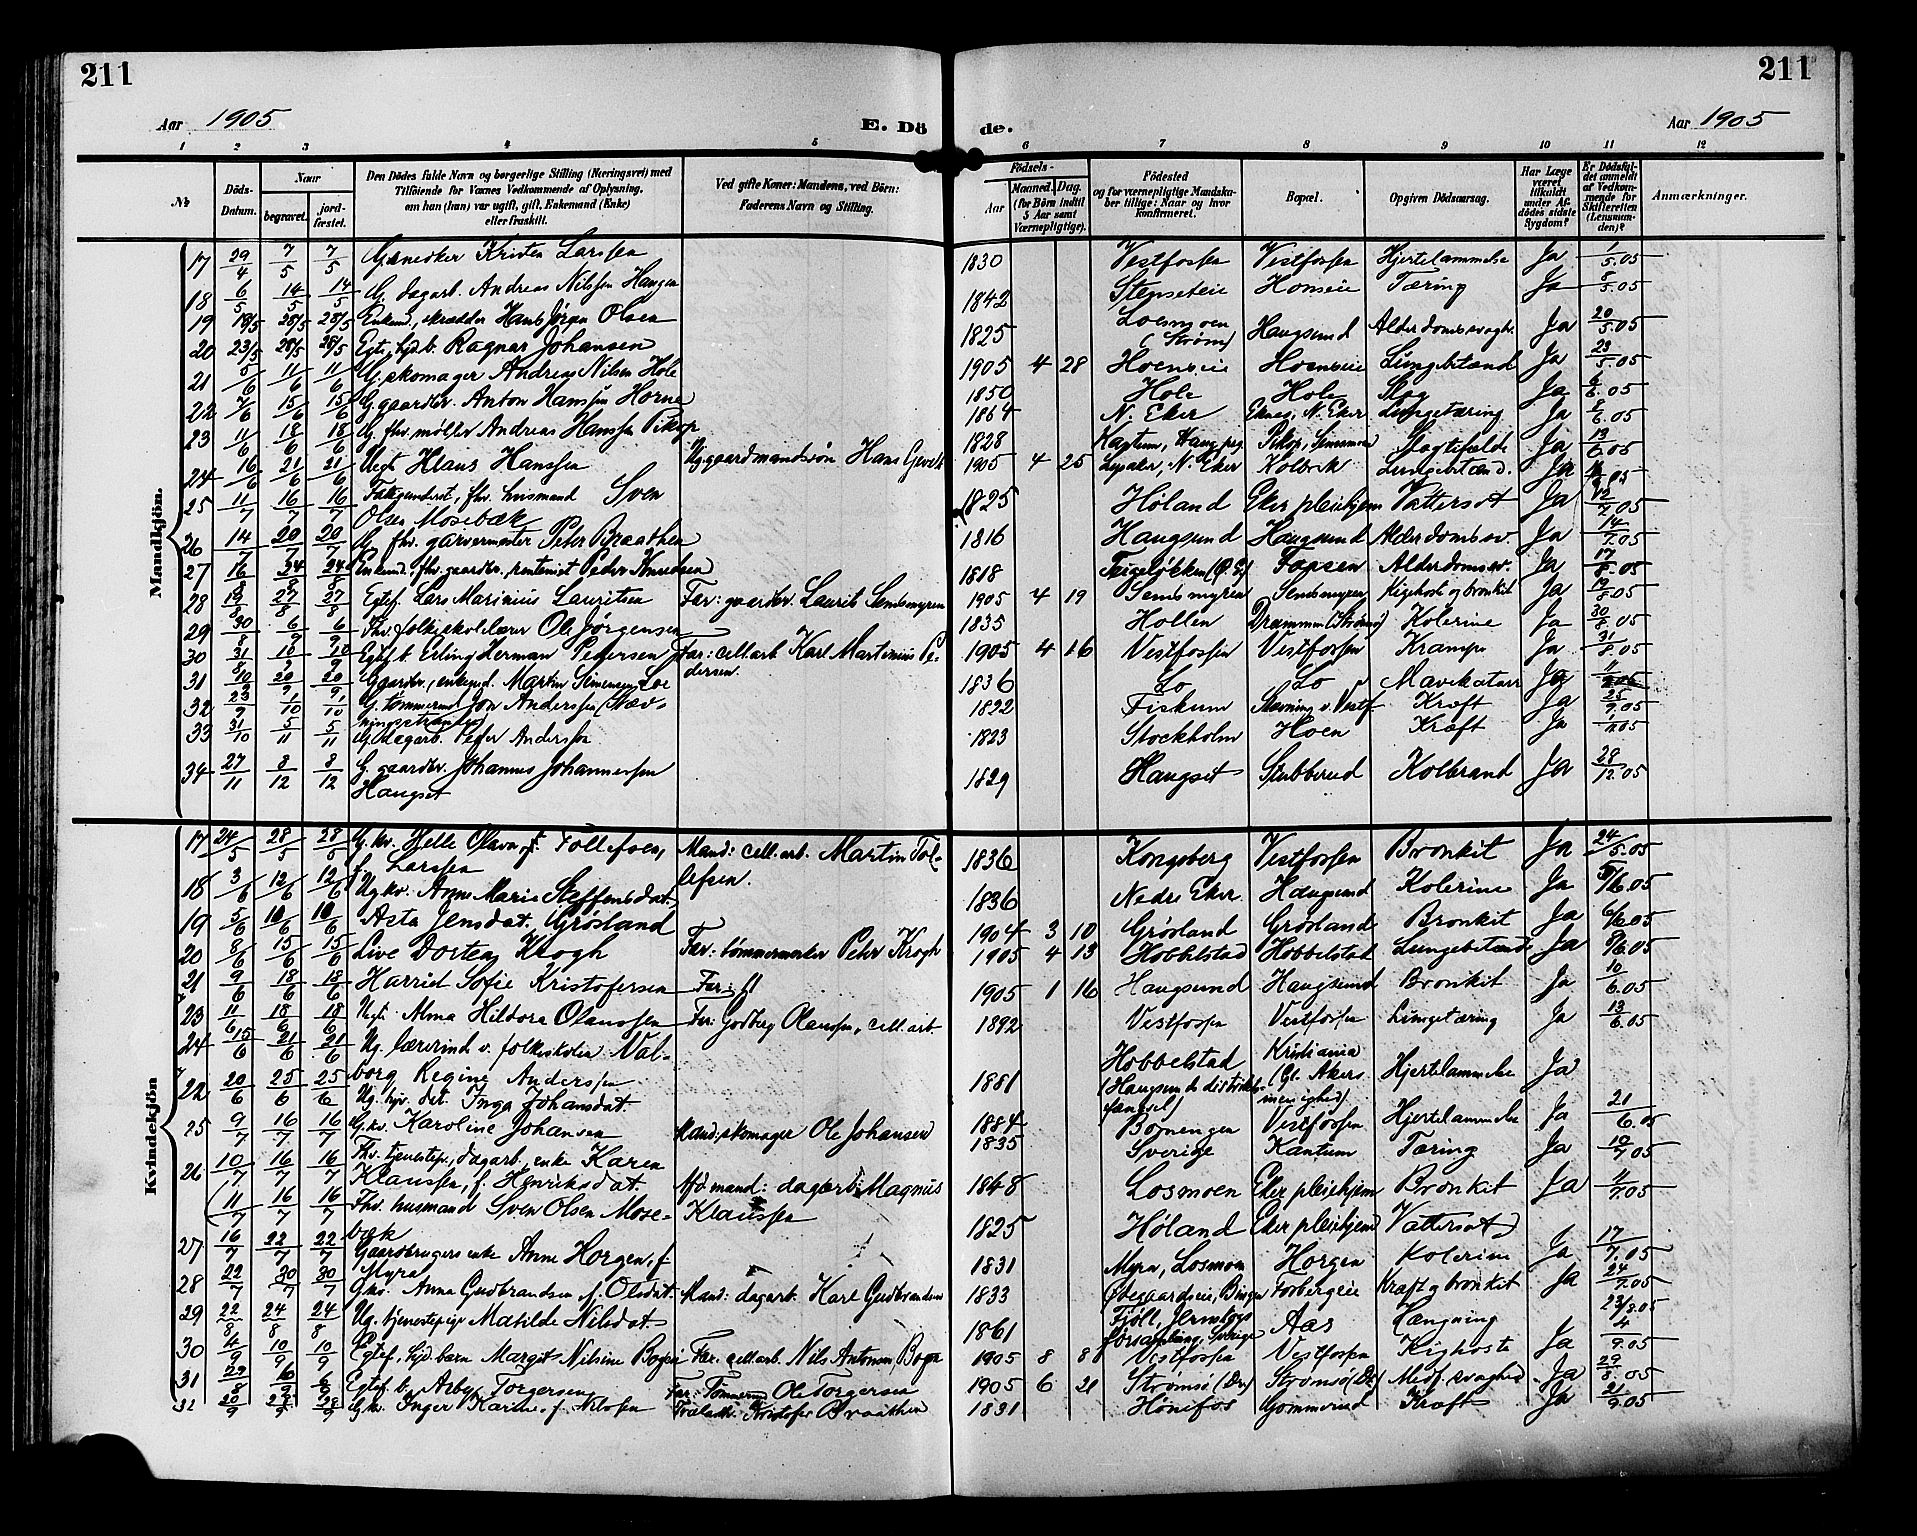 211
211
Aar 1905
E. Dö
de.
Aar 1905
1 2 3 4 5 6 7 8 9 10 11 12
№
Döds-Datum.
Naar
begravet.
jord-fæstet.
Den Dödes fulde Navn og borgerlige Stilling (Næringsvei) med
Tilföiende for Voxnes Vedkommende af Oplysning,
om han (hun) var ugift, gift, Enkemand (Enke)
eller fraskilt.
Ved gifte Koner: Mandens, ved Börn:
Faderens Navn og Stilling.
Födsels-
Aar
Maaned. Dag.
(for Börn indtil 5 Aar samt Værnepligtige).
Födested
og for værnepligtige Mandska-
ber tillige: Naar og hvor
konfirmeret.
Bopæl.
Opgiven Dödsaarsag.
Har Læge været tilkaldt under Afdödes sidste Sygdom?
Er Dödsfaldet anmeldt af Vedkommende for Skifteretten (Lensmanden)?
Anmærkninger.
Mandkjön.
17 29/4 7/5 7/5 Kristen Larssen 1830 Vestfossen Vestfossen Hjertelammelse Ja 1/5.05
18 6/5 14/5 14/5 G. dagarb. Andreas Nilssen Haugen 1842 Honseie Tæring Ja 8/5.05
19 19/5 28/5 28/5 Enkem., skrædder Hans Jørgen Olsen 1825 Loesmoen (Strøm) Haugsund Alderdomssvagh. Ja 20/5.05
20 23/5 28/5 28/5 Egte, hjd.b. Ragnar Johansen 1905 4 28 Hoenseie Hoenseie Lungebetænd Ja 23/5.05
21 5/6 11/6 11/6 G. skomager Andreas Nilsen Hole 1850 Hole Hole Slag Ja 6/6.05
22 7/6 15/6 15/6 G. gaardbr. Anton Hanssen Horne 1864 N. Eker Eknes, N. Eker Lungetæring Ja 8/6.05
23 11/6 18/6 18/6 G. fhv. møller Andreas Hanssen Pikop 1828 Pikop, Slagtilfælde Ja 13/6.05
24 16/6 21/6 21/6 Uegt Klaus Hanssen Ug. gaardmandssøn Hans 1905 4 25 N. Eker Kolbrek Lungebetænd. Ja
25 11/7 16/7 16/7 Fattigunderst., fhv. husmand Sven
Olsen Mosebæk 1825 Høland Eker pleiehjem Vattersot Ja 12/7.05
26 14/7 20/7 20/7 G. fhv. garvermester Peter Braathen 1816 Haugsund Haugsund Alderdomssv. Ja 14/7.05
27 16/7 24/7 24/7 Enkem. fhv. gaardbr., rentenist Peder Knudsen 1818 Teigeløkken Fossen Alderdomssv. Ja
28 19/8 27/8 27/8 Egtef. Lars Marinius Lauritsen Far: gaardbr. Laurits Semsmyren 1905 4 19 Semsmyren Semsmyren Kighoste og bronkit Ja 19/8.05
29 30/8 6/9 6/9 Fhv. folkeskolelærer Ole Jørgensen 1835 Hollen Drammen (Strømsø) Kolerine Ja 30/8.05
30 31/8 10/9 10/9 Egtef. b. Erling Herman Pedersen Far: cell.arb. Karl Martinius Pe-
dersen. 1905 4 16 Vestfossen Vestfossen Krampe Ja 31/8.05
31 10/9 20/9 20/9 Gaardbr., enkemd. Martin Simensen Loe 1836 Lo Lo Mavekatarr Ja
32 23/9 1/10 1/10 G. tømmermd. Jon Anderssen (Næv-
ningsstranden) 1822 Fiskum Kræft Ja 25/9.05
33 31/10 5/11 5/11 G. dagarb. Peder Anderssen 1823 Stockholm Hoen Kræft Ja
34 27/11 8/12 8/12 G. gaardbr. Johannes Johannessen
Haugset 1829 Haugset Stubberud Kolbrand Ja 28/12.05
Kvindekjön
17 24/5 28/5 28/5 G. kv. Helle Olava Tollefsen,
f. Larssen Mand: cell.arb. Martin Tol-
lefsen. 1836 Kongsberg Vestfossen Bronkit Ja 24/5.05
18 3/6 12/6 12/6 Ug kv. Anne Marie Steffensdat. 1836 Nedre Eker Haugsund Kolerine Ja 5/6.05
19 5/6 10/6 10/6 Asta Jensdat. Grøsland 1904 3 10 Grøsland Grøsland Bronkit Ja 6/6.05
20 8/6 15/6 15/6 Live Dortea Krogh Far: tømmermerker Peter Krogh 1905 4 13 Hobbelstad Hobbelstad Lungebetænd Ja 8/6.05
21 9/6 18/6 18/6 Harriet Sofie Kristofersen Far: 1905 1 16 Haugsund Haugsund Bronkit Ja 10/6.05
23 11/6 18/6 18/6 Uegt. Alma Hildora Olaussen Far: Godberg Olaussen, cell.arb. 1892 Vestfossen Vestfossen Lungetæring Ja 13/6.05
24 15/6 21/6 21/6 Ug. lærerinde v. folkeskolen Val-
borg Regine Anderssen 1881 Hobbelstad
(Haugsunds distrikts-
fængsel) Kristiania
(Gl. Akers
menighed) Hjertelammelse Ja
22 20/6 25/6 25/6 Ug. hjv. det. Inga Johansdat. 1884 Vestfossen Hjertelammelse Ja 21/6.05
25 9/7 16/7 16/7 G. kv. Karoline Johansen Mand: skomager Ole Johansen 1835 Sverige Kantum Tæring Ja 10/7.05
26 10/7 16/7 16/7 Fhv. tjenestep., dagarb. enke Karen
Klaussen, f. Henriksdat. Afd. mand: dagarb. Magnus
Klaussen 1848 Losmoen Eker pleiehjem Bronkit Ja 11/7.05
(11/7 16/7 16/7 Fhv. husmand Sven Olsen Mose-
bæk 1825 Høland Eker pleiehjem Vattersot)
27 16/7 22/7 22/7 Gaardbrugers enke Anne Horgen, f.
Myra 1831 Myra, Losmoen Horgen Kolerine Ja 17/7.05
28 22/7 30/7 30/7 G. kv. Anne Gudbrandsen f. Olsdat. Mand: dagarb. Karl Gudbrandsen 1833 Ødegaardseie, Bingen Forbergeie Kræft og bronkit Ja 24/7.05
29 22/8 24/8 24/8 Ug. tjenestepige Matilde Nilsdat. 1861 Fjøll,
församling, Sverige Aas Hængning 23/8.05
30 4/9 10/9 10/9 Egtef., hjd. barn Margit Nilsine Bogen Far: cell.arb. Nils Antonsen Bogen 1905 8 8 Vestfossen Vestfossen Kighoste Ja 4/9.05
31 29/8 Egtef. b. Asby Torgersen Far: Tømmermd. Ole Torgersen 1905 6 21 Strømsø (Dr.) Strømsø (Dr.) Medf. svaghed Ja 29/8.05
32 20/9 G. kv. Inger Karine, f. Nilssen Kristofer Braathen 1831 Hønefos Gommerud Kræft Ja 21/9.05